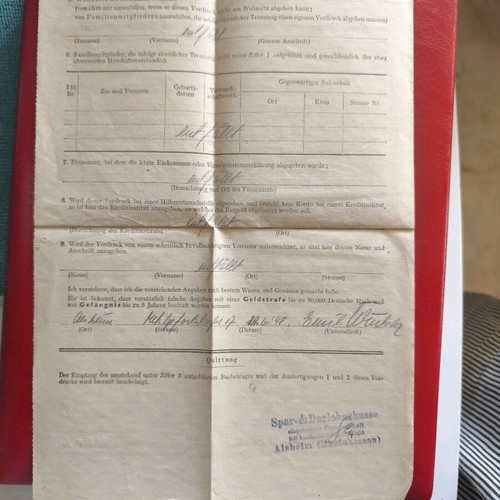 (von ihm nur auszufüllen, wenn er diesen Vordruck nicht am Wohnsitz abgeben kann;
von Familienmitgliedern auszufüllen, die infolge kriegsbedingter Trennung einen eigenen Vordruck abgeben müssen)
entfällt
(Zuname) (Vorname) (Genaue Anschrift)
6. Familienmitglieder, die infolge räumlicher Trennung nicht unter Ziffer 1 aufgeführt sind (einschließlich des etwa
abwesenden Haushaltsvorstandes).
Lfd. Nr Zu- und Vorname Geburts-datum Verwandt-schaftsverh. Gegenwärtiger Aufenthalt
Ort Kreis Strasse Nr.
entfällt
7. Finanzamt, bei dem die letzte Einkommen- oder Vermögenssteuererklärung abgegeben wurde:
entfällt
(Bezeichnung und Ort des Finanzamts)
8. Wird dieser Vordruck bei einer Hilfsumtauschstelle abgegeben, und besteht kein Konto bei einem Kreditinstitut,
so ist das Kreditinstitut anzugeben, an welches das Altgeld abgeliefert werden soll.
entfällt
(Bezeichnung des Kreditinstituts)
9. Wird der Vordruck von einem schriftlich bevollmächtigten Vertreter unterzeichnet, so sind hier dessen Name und
Anschrift anzugeben.
entfällt
(Name) (Vorname) (Ort) (Strasse)
Ich versichere, dass ich die vorstehenden Angaben nach bestem Wissen und Gewissen gemacht habe.
Mir ist bekannt, dass vorsätzlich falsche Angaben mit einer Geldstrafe bis zu 50,000 Deutsche Mark und
mit Gefängnis bis zu 5 Jahren bestraft werden können.
17 48. Emil
(Ort) (Strasse) (Datum) (Unterschrift)
Quittung
Der Empfang des umstehend unter Ziffer 3 aufgeführten Barbetrages und der Ausfertigungen 1 und 2 dieses Vor-
drucks wird hiermit bescheinigt.
Spar- & Darlehnskasse
Alsheim (Rheinhessen)